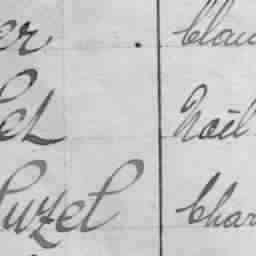 er . Clau
et Noël
luzet Char